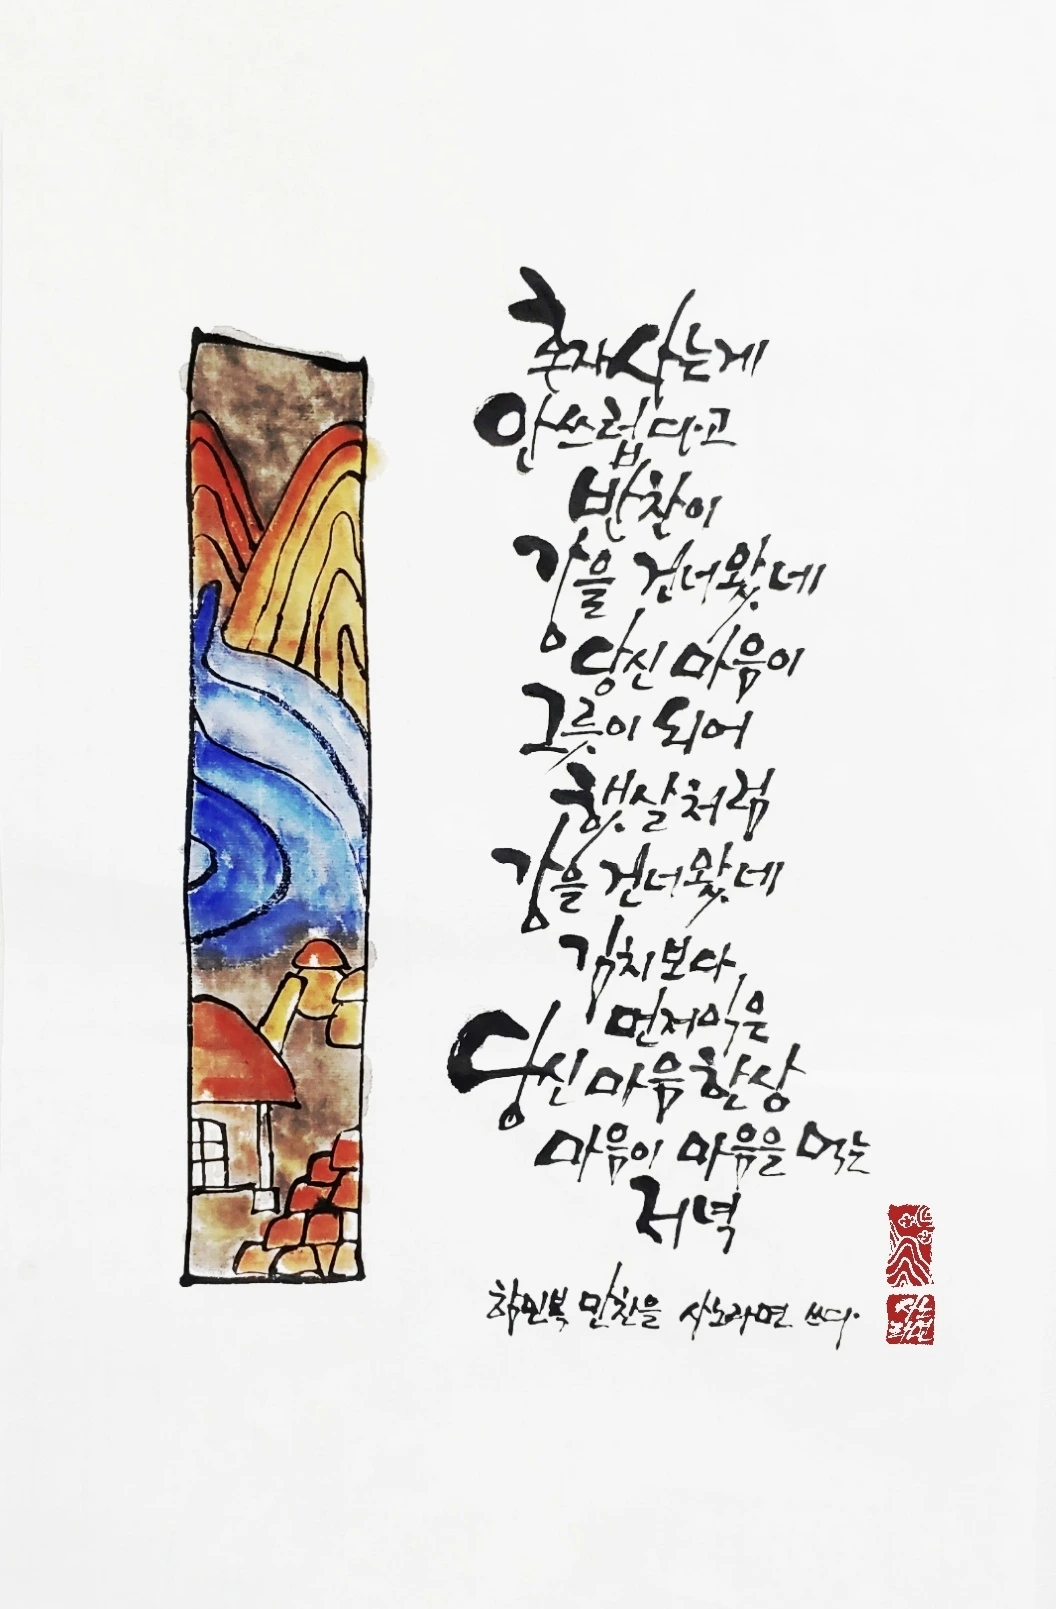 혼자 사는게
안쓰럽다고
반찬이
강을 건너왔네
당신 마음이
그릇이 되어
햇살처럼
강을 건너왔네
김치보다
먼저 익은
당신 마음 한상
마음이 마음을 먹는
저녁
함민복 만찬을 사노라면 쓰다.